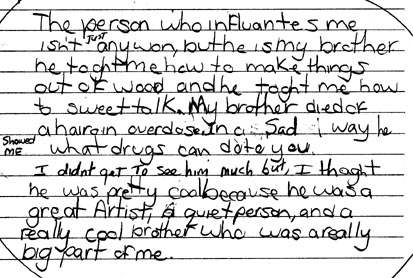 The person who influantes me
isn't just anywon, but he is my brother
he toght me how to make things
out of wood and he toght me how
to sweet talk. My brother died of
a hairoin overdose. In a Sad way he
Showed ME what drugs can do to you.
I didnt get To see him much but, I thoght
he was pretty cool because he was a
great Artist, a quiet person, and a
really cool brother who was a really
big part of me.